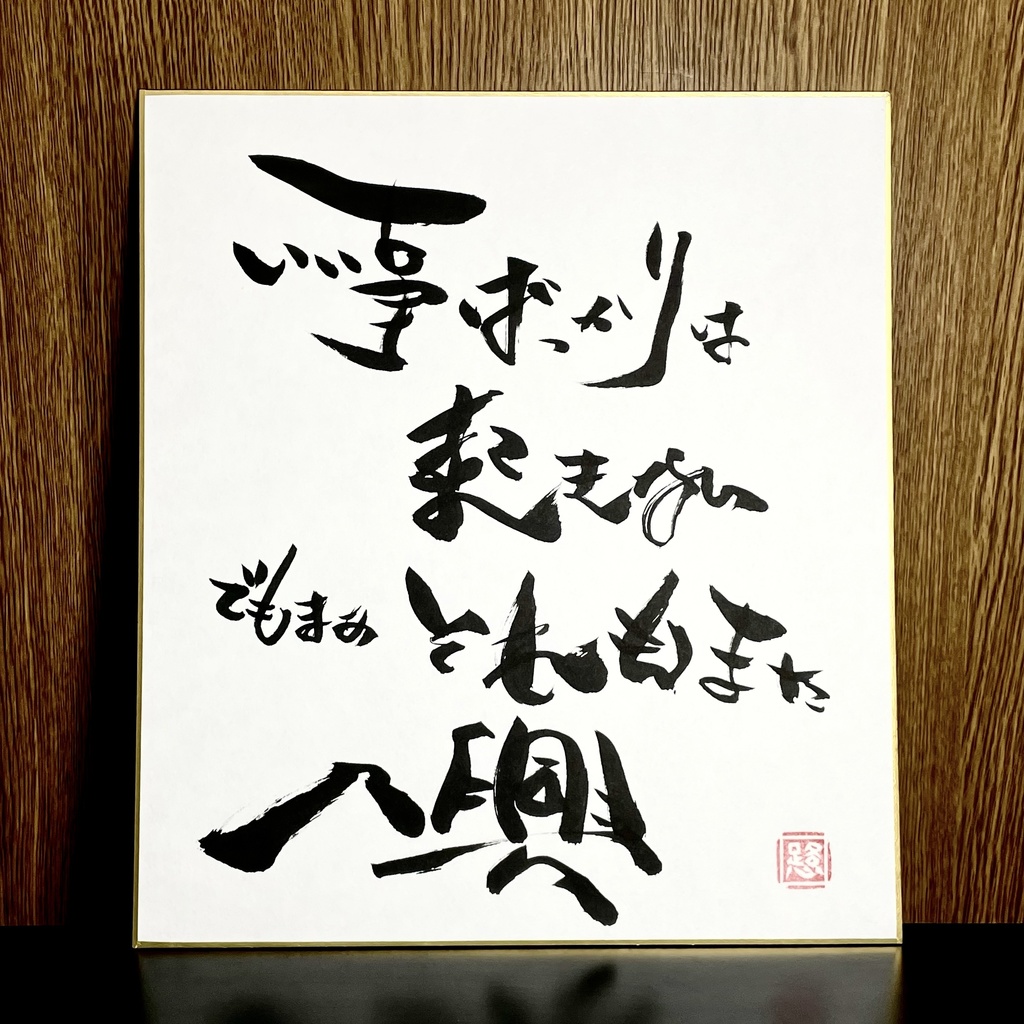 いい事ばっかりは
起きない
でもまあ それもまた
一興